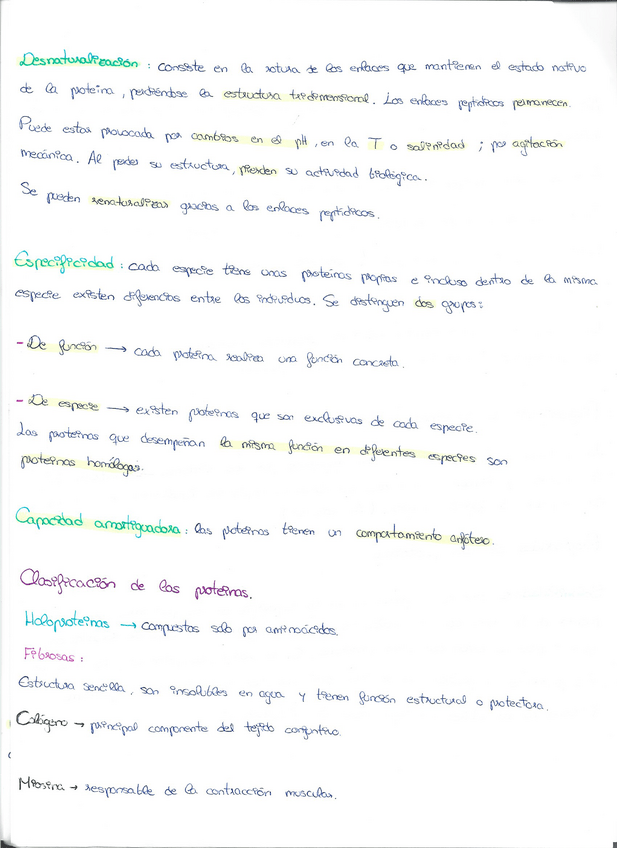 Desnaturalización : consiste en la rotura de los enlaces que mantienen el estado nativo
de la proteína, perdiéndose la estructura tridimensional. Los enlaces peptídicos permanecen.
Puede estar provocada por cambios en el pH, en la T o salinidad ; por agitación
mecánica. Al perder su estructura, pierden su actividad biológica.
Se pueden renaturalizar gracias a los enlaces peptídicos.
Especificidad : cada especie tiene unas proteínas propias e incluso dentro de la misma
especie existen diferencias entre los individuos. Se distinguen dos grupos:
- De función → cada proteína realiza una función concreta.
- De especie → existen proteínas que son exclusivas de cada especie.
Las proteínas que desempeñan la misma función en diferentes especies son
proteínas homólogas.
Capacidad amortiguadora : las proteínas tienen un comportamiento anfótero.
Clasificación de las proteínas.
Holoproteínas → compuestas solo por aminoácidos.
Fibrosas :
Estructura sencilla, son insolubles en agua y tienen función estructural o protectora.
Colágeno → principal componente del tejido conjuntivo.
Miosina → responsable de la contracción muscular.